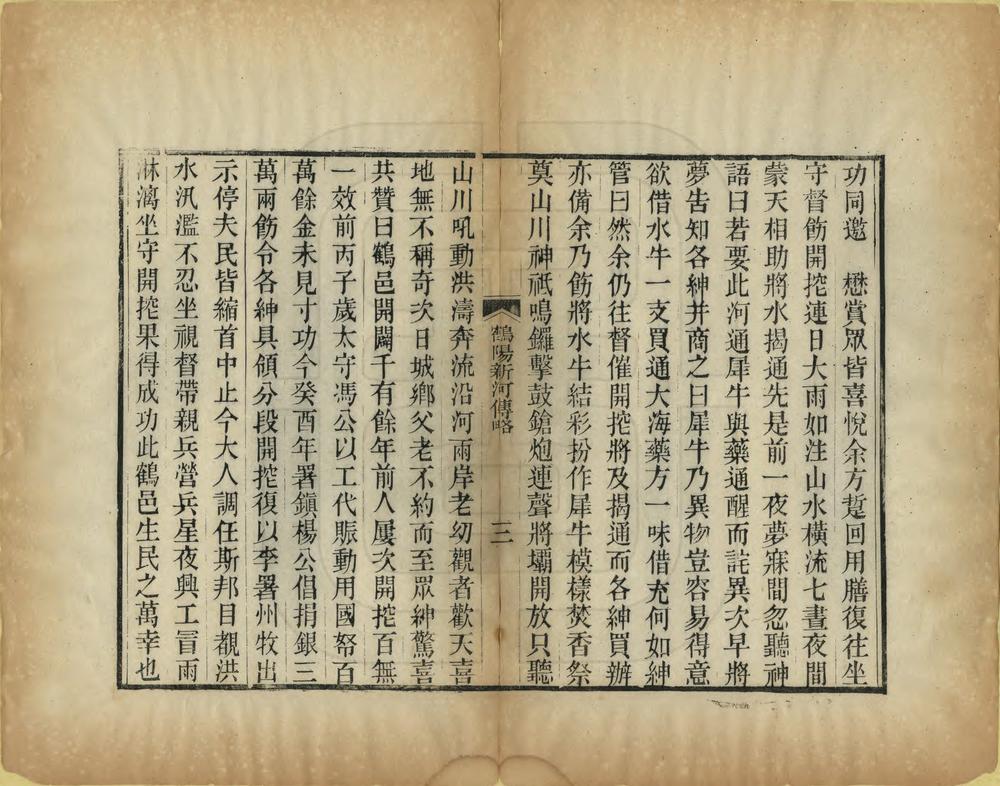 功同邀　懋賞眾皆喜悅余方踅回用膳復往坐
守督飭開挖連日大雨如注山水橫流七晝夜間
蒙天相助將水揭通先是前一夜夢寐間忽聽神
語曰若要此河通犀牛與藥通醒而詫異次早將
夢告知各紳并商之曰犀牛乃異物豈容易得意
欲借水牛一支買通大海藥方一味借充何如紳
管曰然余仍往督催開挖將及揭通而各紳買辦
亦備余乃飭將水牛結彩扮作犀牛模樣焚香祭
奠山川神祇鳴鑼擊鼓鎗炮連聲將壩開放只聽
鶴陽新河傳略
三
山川吼動洪濤奔流沿河兩岸老幼觀者歡天喜
地無不稱奇次日城鄉父老不約而至眾紳驚喜
共贊曰鶴邑開闢千有餘年前人屢次開挖百無
一效前丙子歲太守馮公以工代賑動用國帑百
萬餘金未見寸功今癸酉年署鎮楊公倡捐銀三
萬兩飭令各紳具領分段開挖復以李署州牧出
示停夫民皆縮首中止今大人調任斯邦目覩洪
水汎濫不忍坐視督帶親兵營兵星夜興工冒雨
淋漓坐守開挖果得成功此鶴邑生民之萬幸也